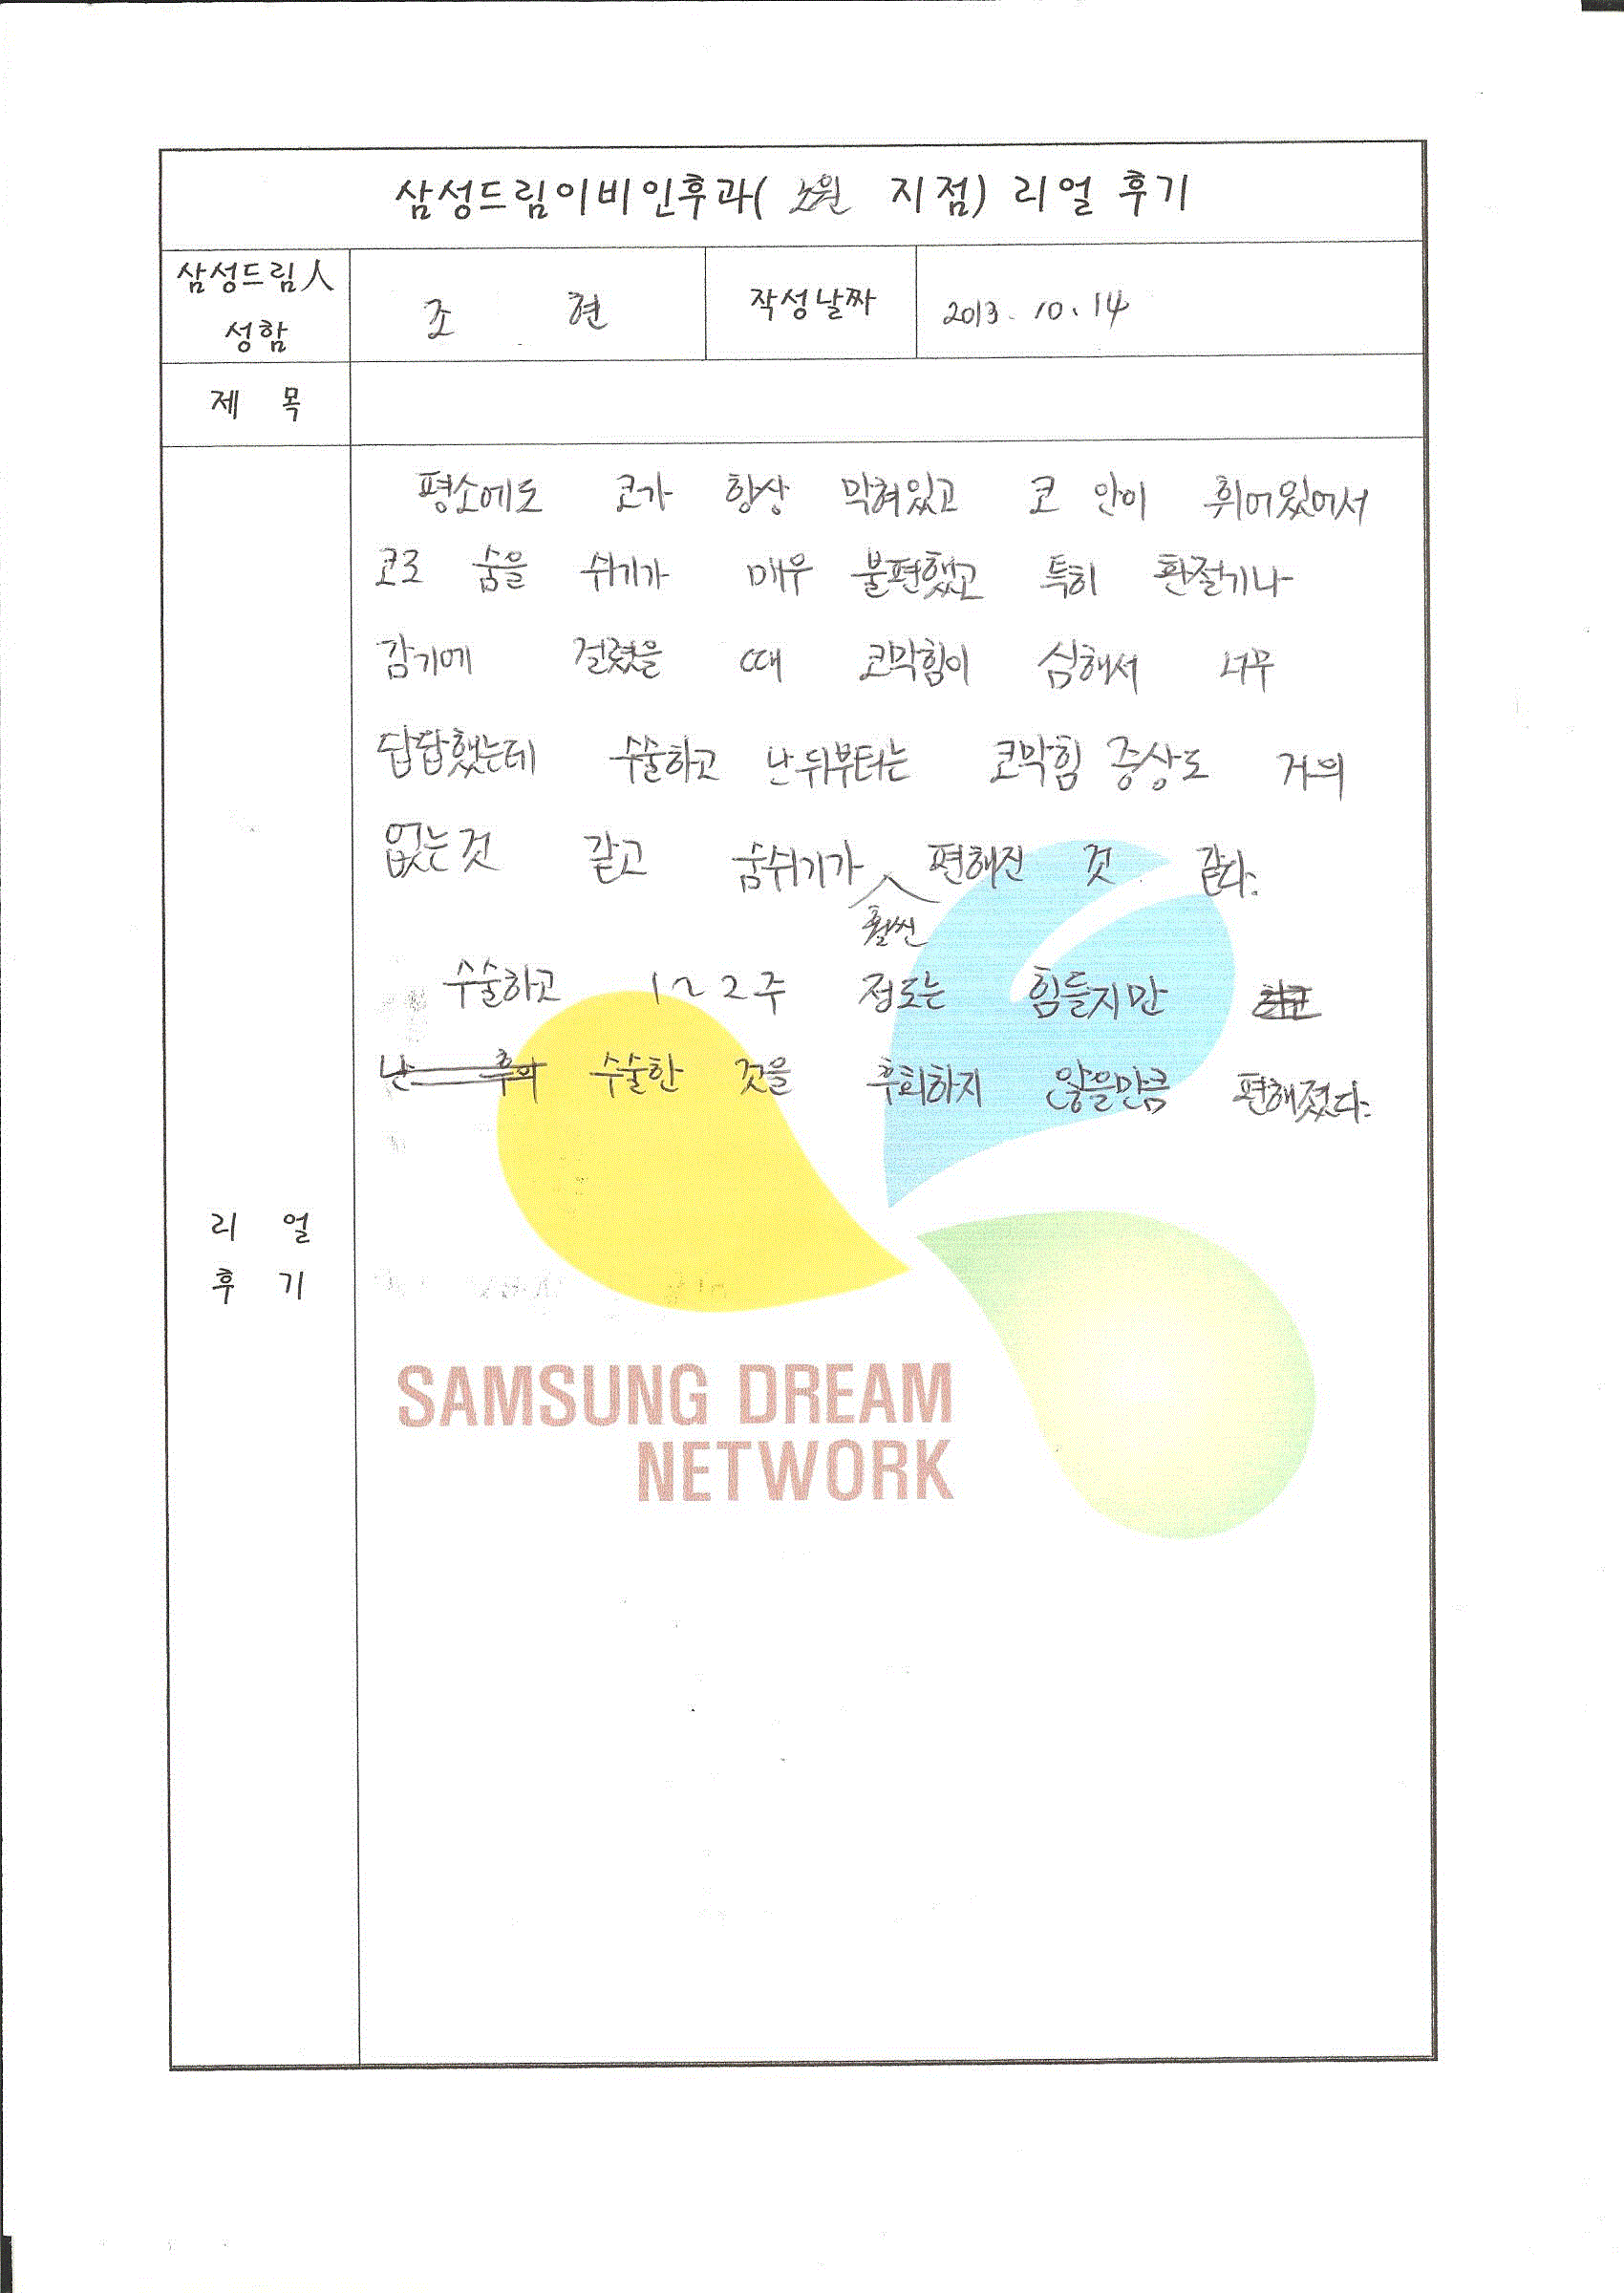 삼성드림이비인후과( 노원 지점) 리얼 후기
삼성드림人 성함
조 현
작성날짜
2013. 10. 14
제 목
평소에도 코가 항상 막혀있고 코 안이 휘어있어서
코로 숨을 쉬기가 매우 불편했고 특히 환절기나
감기에 걸렸을 때 코막힘이 심해서 너무
답답했는데 수술하고 난뒤부터는 코막힘 증상도 거의
없는것 같고 숨쉬기가 훨씬 편해진 것 같다.
수술하고 1~2주 정도는 힘들지만
난 후의 수술한 것을 후회하지 않을만큼 편해졌다.
리 얼
후 기
SAMSUNG DREAM
NETWORK